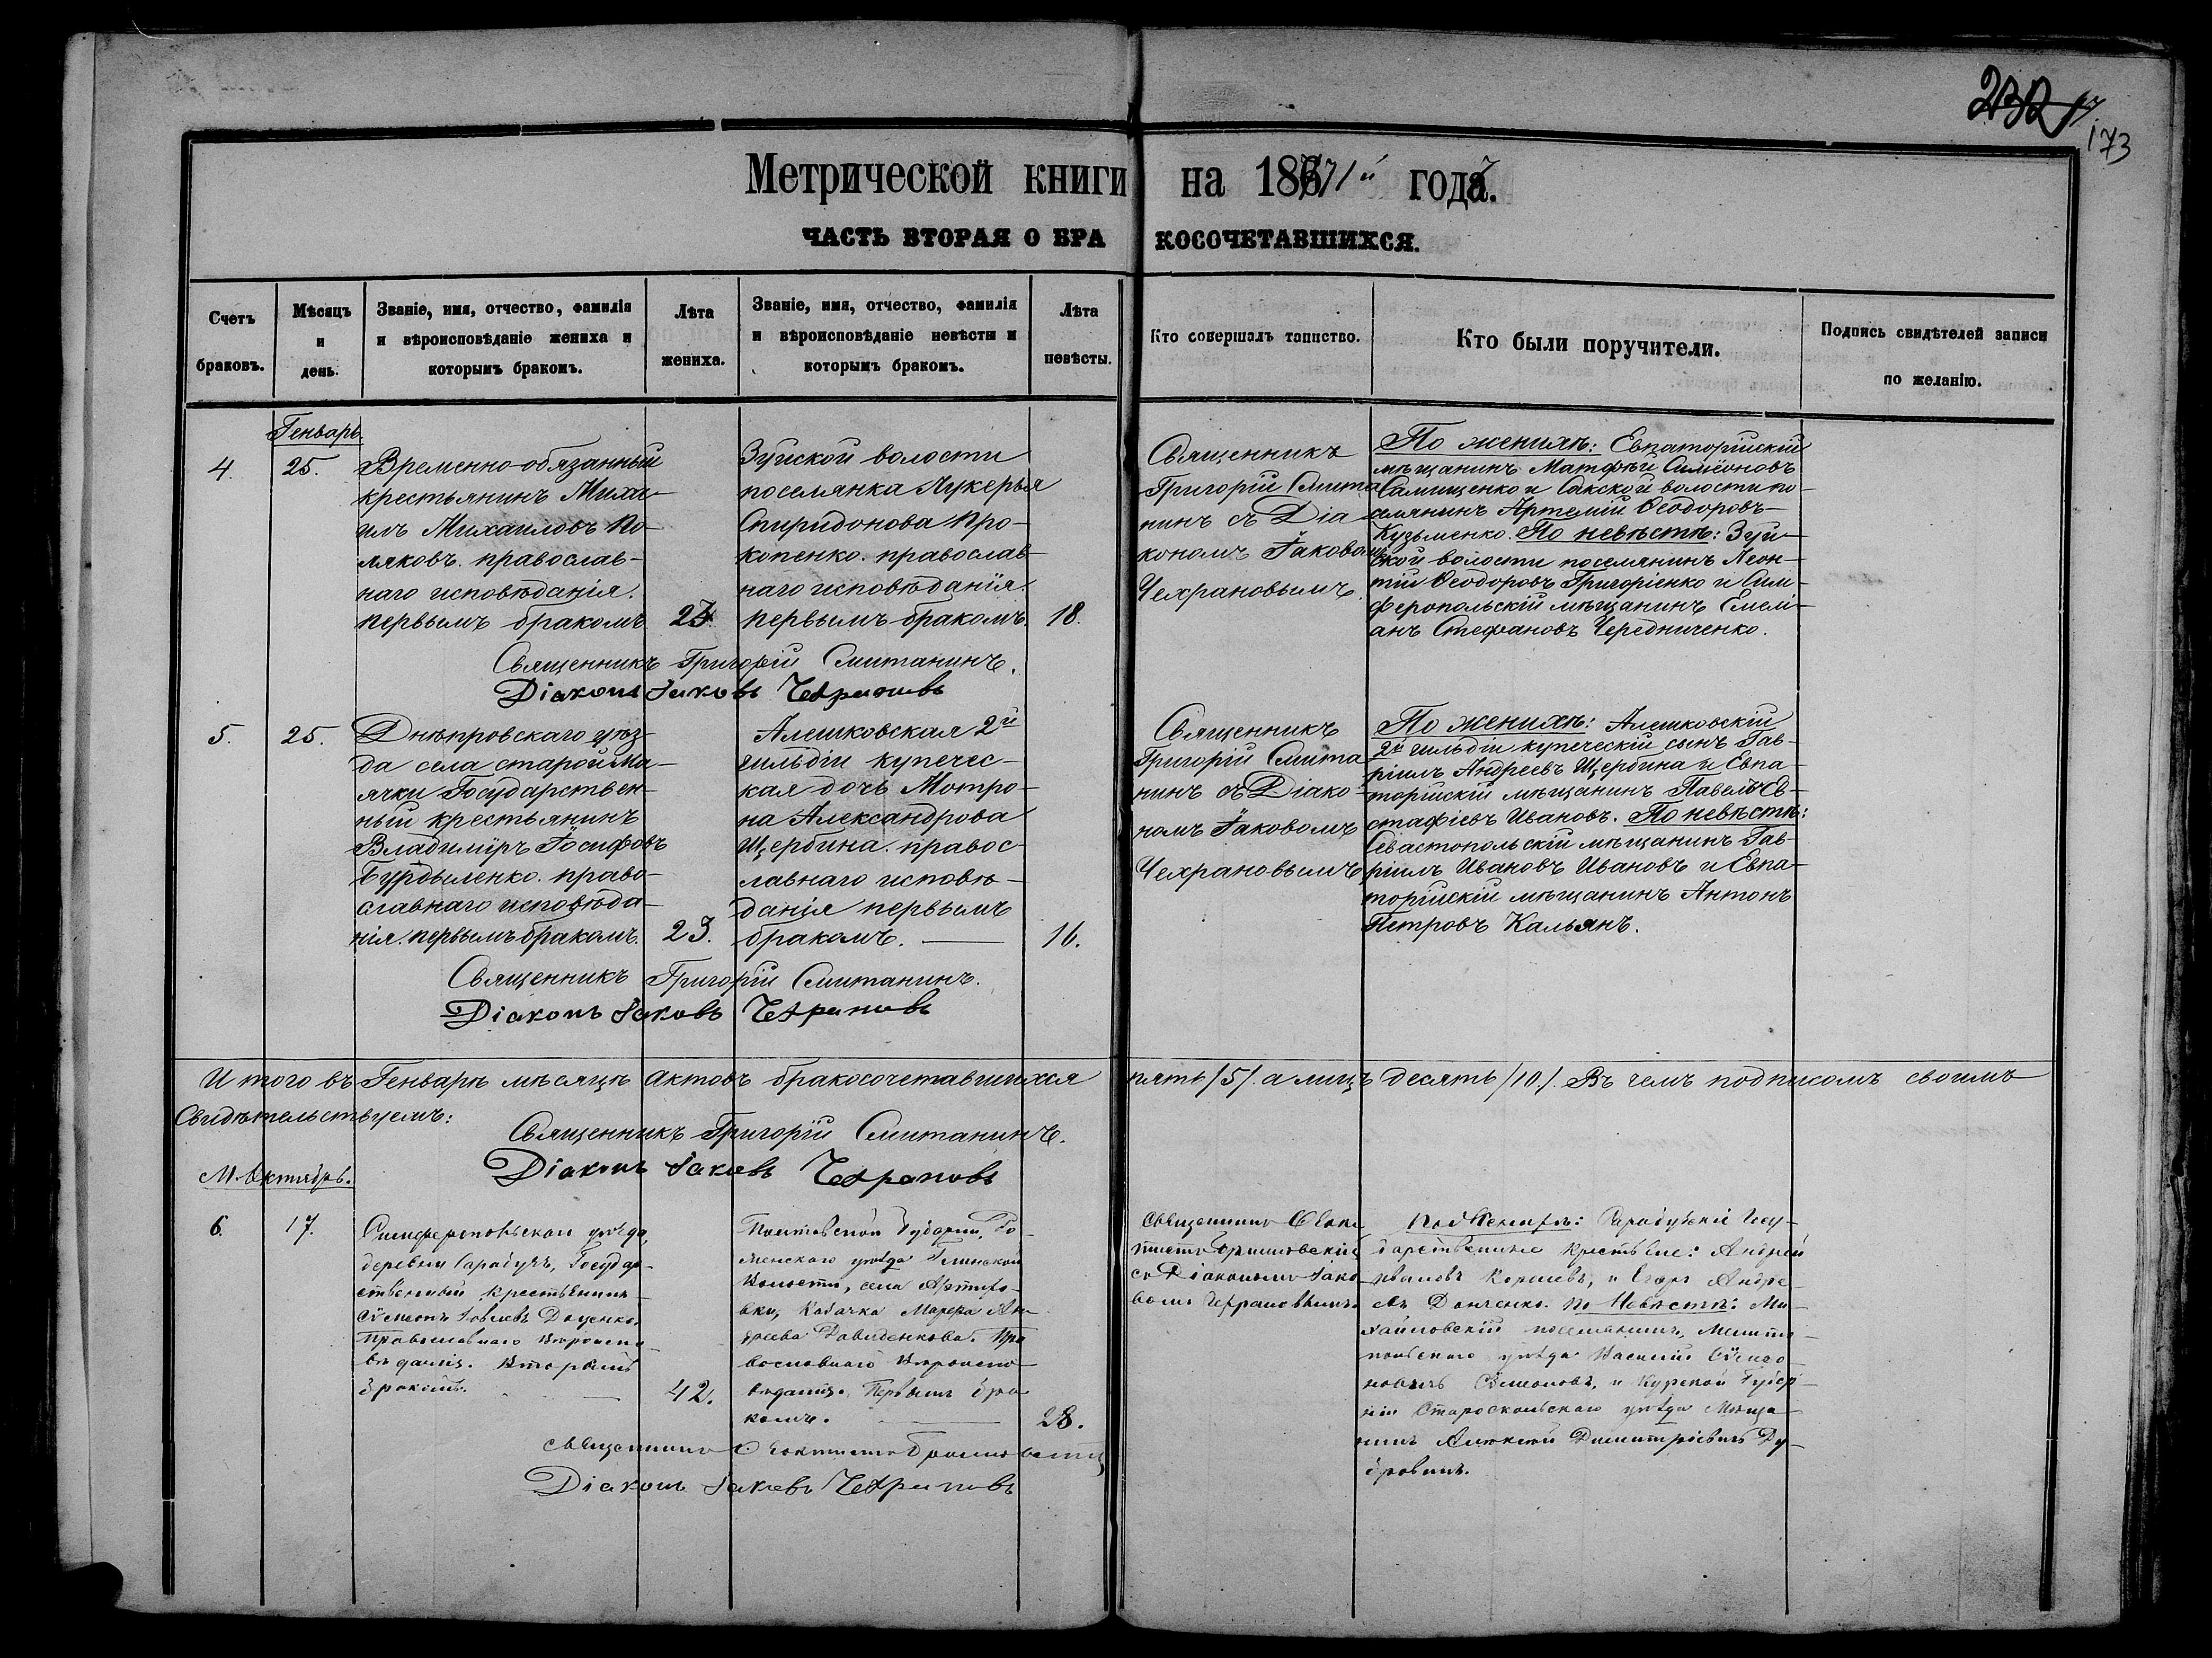 232
173
Метрической книги на 1871й годъ.
ЧАСТЬ ВТОРАЯ О БРАКОСОЧЕТАВШИХСЯ.
Счетъ браковъ.
Мѣсяцъ и день.
Званіе, имя, отчество, фамилія
и вѣроисповѣданіе жениха и
которымъ бракомъ.
Лѣта жениха.
Званіе, имя, отчество, фамилія
и вѣроисповѣданіе невѣсты и
которымъ бракомъ.
Лѣта невѣсты.
Кто совершалъ таинство.
Кто были поручители.
Подпись свидѣтелей записи
по желанію.
Генварь
4.
25.
Временно-обязанный
крестьянинъ Миха-
илъ Михаиловъ По-
ляковъ. православ-
наго исповѣданія.
первымъ бракомъ
23.
Зуйской волости
поселянка Лукерья
Спиридонова Про-
копенко. православ-
наго исповѣданія.
первымъ бракомъ.
18.
Священникъ
Григорій Смита
нинъ съ Діа
кономъ Іаковомъ
Чехрановымъ.
По женихѣ: Евпаторійскій
мѣщанинъ Матфѣй Симеоновъ
Самищенко и Сакской волости по-
слянинъ Артемій Ѳеодоровъ
Кузьменко. По невѣстѣ: Зуй-
ской волости поселянинъ Леон-
тій Ѳеодоровъ Григоріенко и Сим-
феропольскій мѣщанинъ Емелі-
анъ Стефановъ Чередниченко.
Священникъ Григорій Смитанинъ.
Діаконъ Іаковъ Чехрановъ
5.
25.
Днѣпровскаго уѣз-
да села старой Ма-
ячки Государствен-
ный крестьянинъ
Владимiръ Іосифовъ
Бурдыленко. право-
славнаго исповѣда-
нія. первымъ бракомъ.
23.
Алешковская 2й
гильдіи купечес-
кая дочь Мотро-
на Александрова
Щербина. правос-
лавнаго исповѣ-
данія первымъ
бракомъ.
16.
Священникъ
Григорій Смита
нинъ съ Діако-
номъ Іаковомъ
Чехрановымъ
По женихѣ: Алешковскій
2й гильдіи купеческій сынъ Гав-
ріилъ Андреевъ Щербина и Евпа-
торійскій мѣщанинъ Павелъ Ев-
стафіевъ Ивановъ. По невѣстѣ:
Севастопольскій мѣщанинъ Гав-
ріилъ Ивановъ Ивановъ и Евпа-
торійскій мѣщанинъ Антонъ
Петровъ Кальянъ.
Священникъ Григорій Смитанинъ.
Діаконъ Іаковъ Чехрановъ
И того въ Генварѣ мѣсяцѣ актовъ бракосочетавшихся пять /5/. а лицъ десять /10/. Въ чемъ подписомъ своимъ
Свидѣтельствуемъ:
Священникъ Григорій Смитанинъ.
Діаконъ Іаковъ Чехрановъ
М. Октябрь.
6.
17.
Симферопольскаго уѣзда,
деревни Сарабузъ, Государ-
ственный крестьянинъ
Сѵмеонъ Доценко.
Православнаго вѣроиспо-
вѣданія. Вторымъ
бракомъ.
42.
Полтавской Губерніи, Ро-
менскаго уѣзда Глинской
Волости, села
Козачка Ан-
дреева Давиденкова. Пра
вославнаго Вѣроиспо-
вѣданія. Первымъ бра
комъ.
28.
Священникъ Ѳеок
тистъ
съ Діакономъ Іако-
вомъ Чехрановымъ.
Сарабузскіе Госу-
дарственные крестьяне: Андрей
Ивановъ и Егоръ Андре-
евъ Донченко. по Невѣстѣ: Ми-
хайловскій поселянинъ, Мелито-
польскаго уѣзда Василій
Сѵмеоновъ, и Курской Губер-
ніи Староскольскаго уѣзда Мѣща-
нинъ Алексѣй Димитріевичъ Ду-
бровинъ.
Священникъ Ѳеоктистъ
Діаконъ Іаковъ Чехрановъ